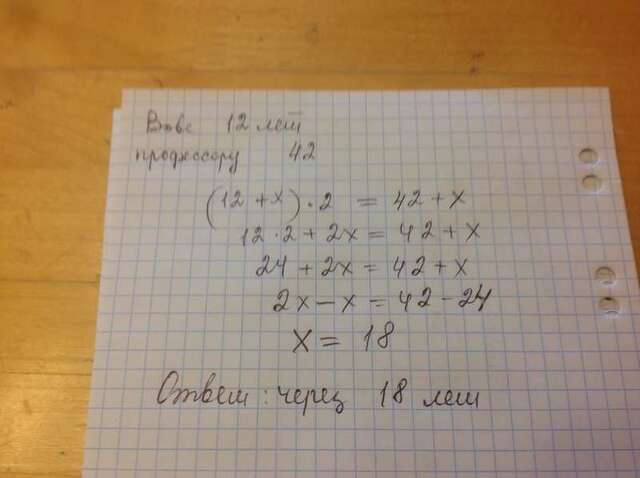 Вове 12 лет
профессору 42
(12 + x) · 2 = 42 + x
12 · 2 + 2x = 42 + x
24 + 2x = 42 + x
2x - x = 42 - 24
x = 18
Ответ: через 18 лет